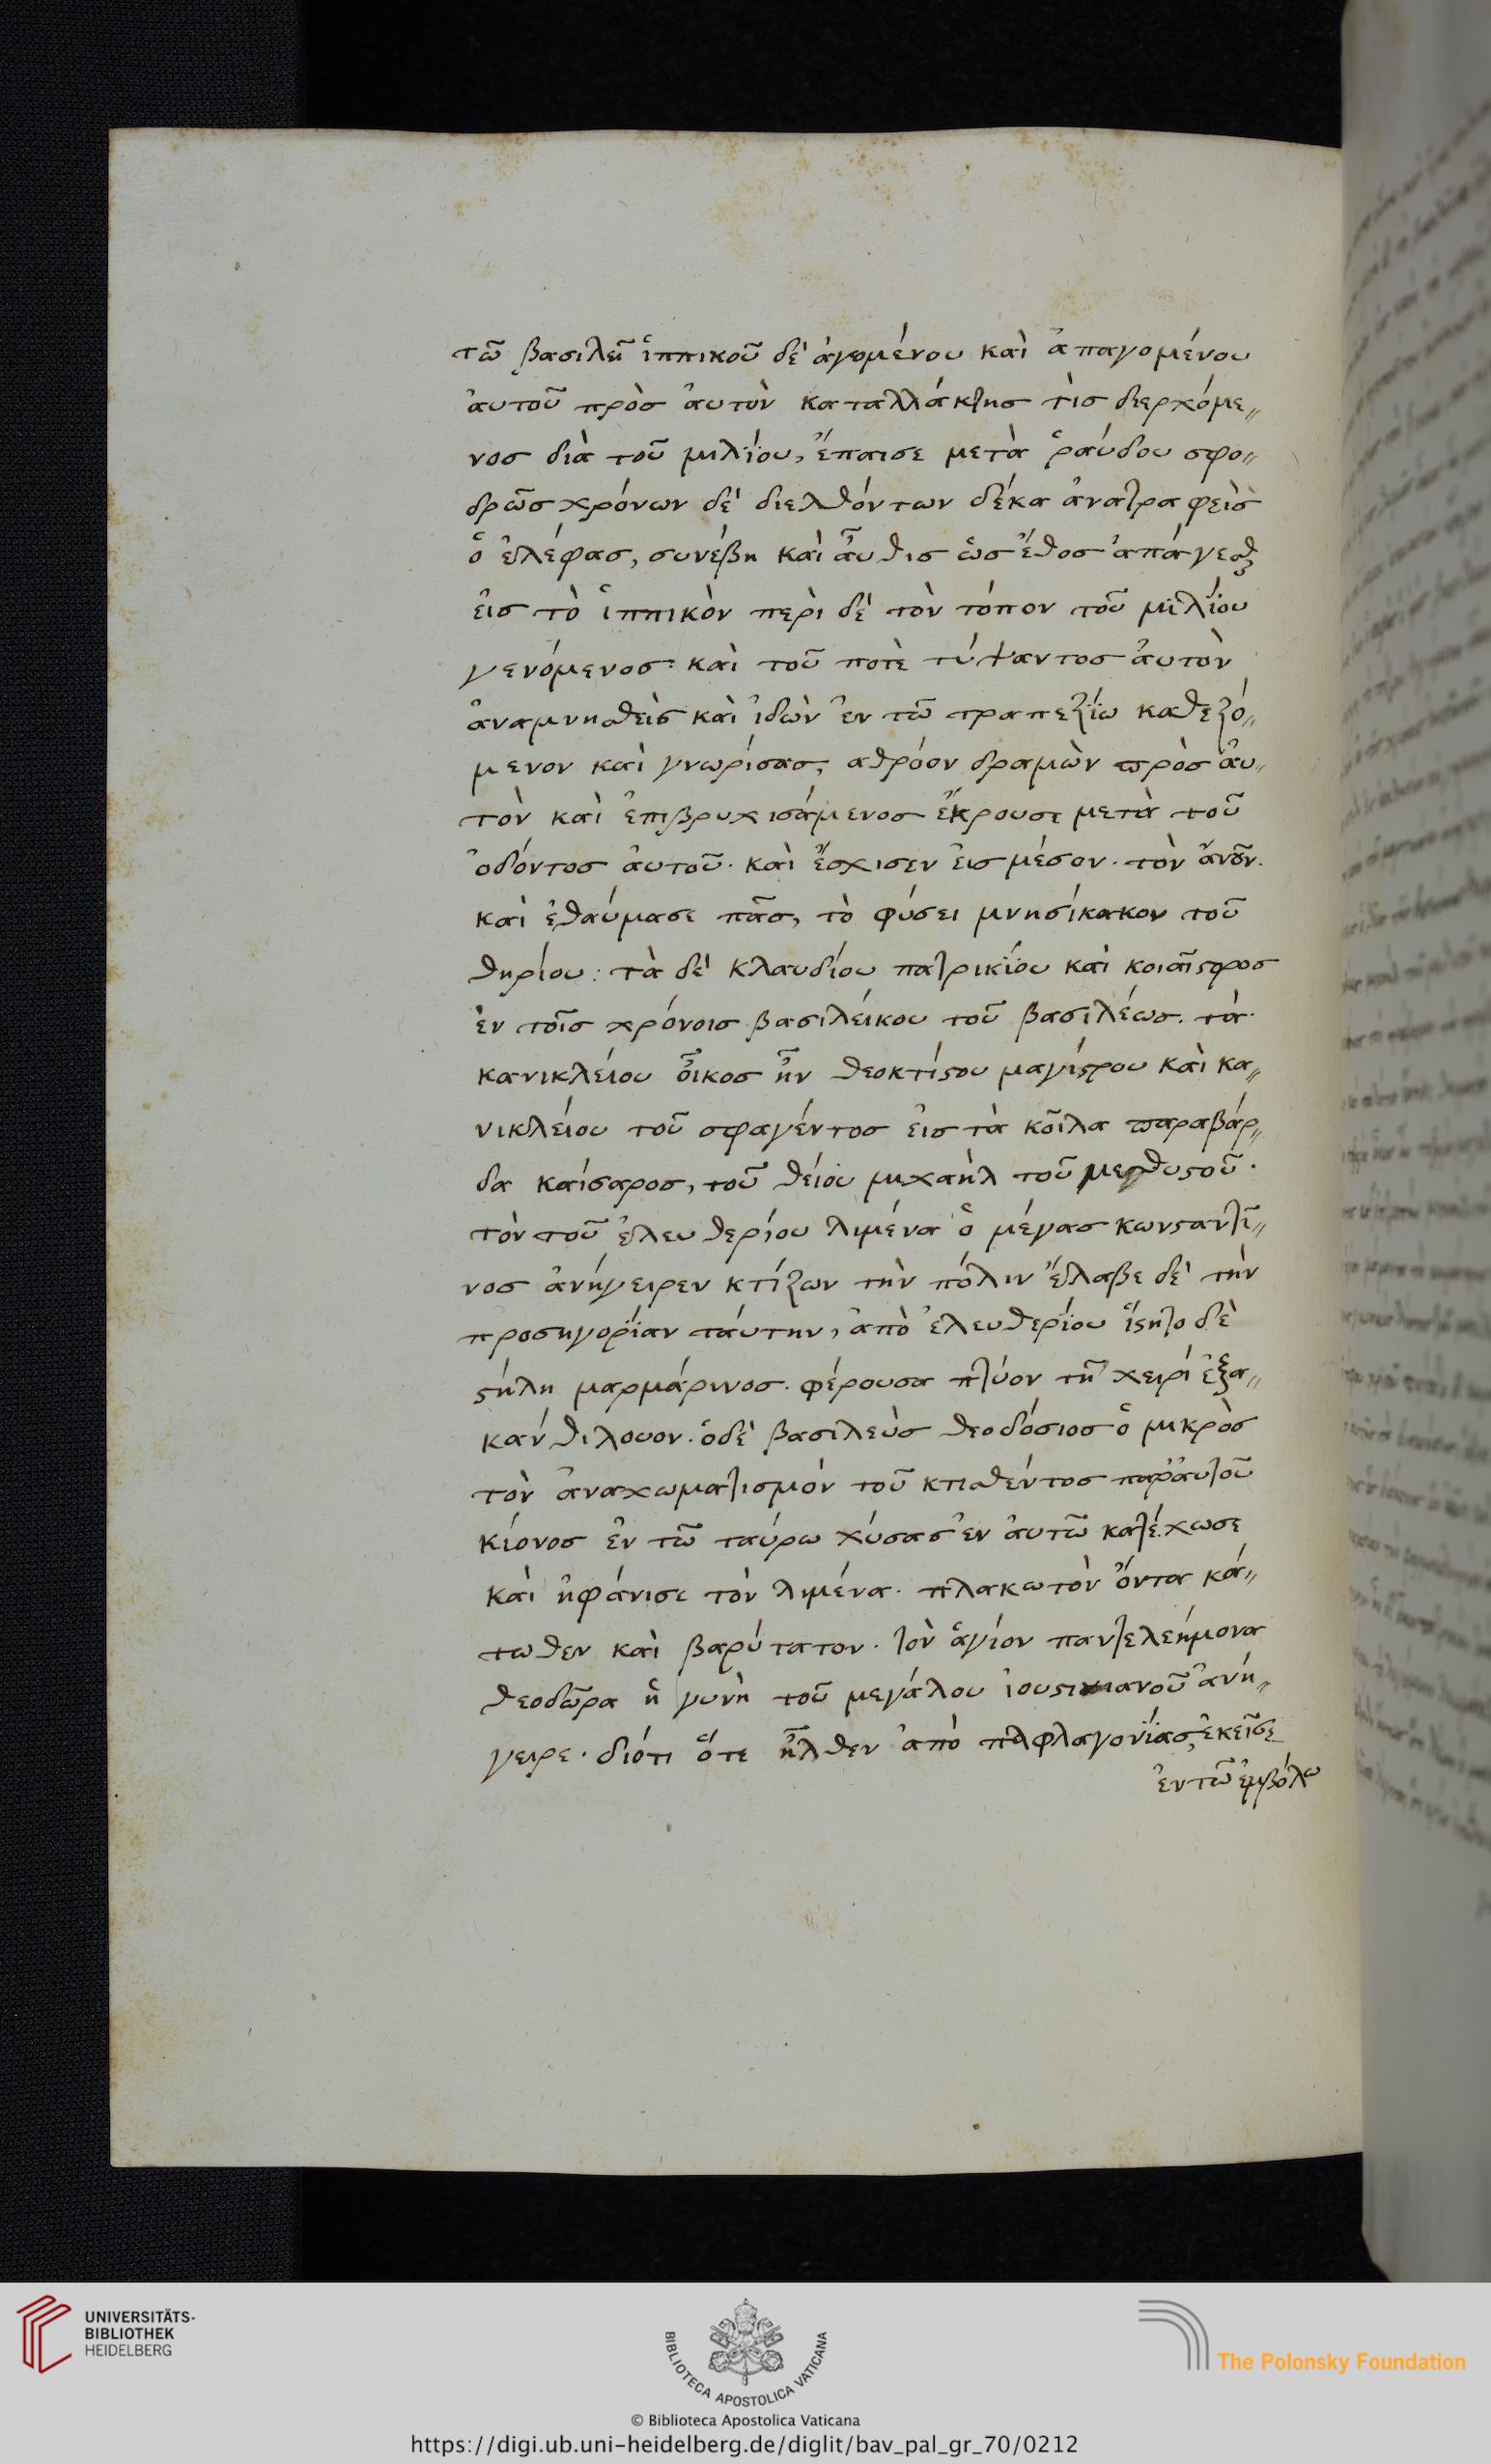 τῶ βασιλεῖ ἱππικοῦ δὲ ἀγομένου καὶ ἀπαγομένου
ἀυτοῦ πρὸσ ἀυτὸν καταλλάκτησ τὶσ διερχόμε„
νοσ διὰ τοῦ μιλΐου, ἔπαισε μετὰ ῥαύδου σφο„
δρῶσ χρόνων δὲ διελθόντων δέκα ἀνατραφεὶσ
ὁ ἐλέφασ, συνέβη καὶ ἆυθισ ὡσ ἔθοσ ἀπάγεσθ
ἐισ τὸ ἱππικὸν περὶ δὲ τὸν τόπον τοῦ μϊλΐου
γενόμενοσ· καὶ τοῦ ποτὲ τύψαντοσ ἀυτὸν
ἀναμνησθεὶσ καὶ ἰδὼν ἐν τῶ τραπεζΐω καθεζό„
μενον καὶ γνωρίσασ, αθρόον δραμὼν πρὸσ ἀυ„
τὸν καὶ ἐπιβρυχισάμενοσ ἔκρουσε μετὰ τοῦ
ὀδόντοσ ἀυτοῦ· καὶ ἔσχισεν ἐισ μέσον· τὸν ἄνον.
καὶ ἐθαύμασε πᾶσ, τὸ φύσει μνησίκακον τοῦ
θηρίου: τὰ δὲ κλαυδίου πατρικΐου καὶ κοιαίϛορος
ἐν τοῖσ χρόνοισ βασιλείκου τοῦ βασιλέωσ. τὰ
κανικλείου ὆ικοσ ἦν θεοκτίϛου μαγίϛρου καὶ κα„
νικλείου τοῦ σφαγέντοσ ἐισ τὰ κοῖλα παραβάρ„
δα καίσαροσ, τοῦ θείου μιχαὴλ τοῦ μεθυϛοῦ.
τὸν τοῦ ἐλευθερίου λιμένα ὁ μέγασ κωνϛαντῖ„
νοσ ἀνήγειρεν κτίζων τὴν πόλιν ἔλαβε δὲ τὴν
προσηγορΐαν ταύτην, ἀπὸ ἐλευθερΐου ἵϛητο δὲ
ϛήλη μαρμάρινοσ. φέρουσα πτύον τῆ χειρὶ ἑξα„
κάνθιλουον. ὁδὲ βασιλεὺσ θεοδόσιοσ ὁ μικρὸσ
τὸν ἀναχωματισμὸν τοῦ κτισθέντοσ παρ᾽ἀυτοῦ
κίονοσ ἐν τῶ ταύρω χύσασ ἐν ἀυτῶ κατέχωσε
καὶ ἠφάνισε τὸν λιμένα· πλακωτὸν ὄντα κά„
τωθεν καὶ βαρύτατον. τὸν ἅγιον παντελεήμονα
θεοδῶρα ἡ γυνὴ τοῦ μεγάλου ἰουϛινιανοῦ ἀνή„
γειρε. διότι ὅτε ἦλθεν ἀπὸ παφλαγονΐασ, ἐκεῖσε
ἐν τῶ ἐμβόλω
UNIVERSITÄTS-
BIBLIOTHEK
HEIDELBERG
BIBLIOTECA APOSTOLICA VATICANA
The Polonsky Foundation
© Biblioteca Apostolica Vaticana
https://digi.ub.uni-heidelberg.de/diglit/bav_pal_gr_70/0212